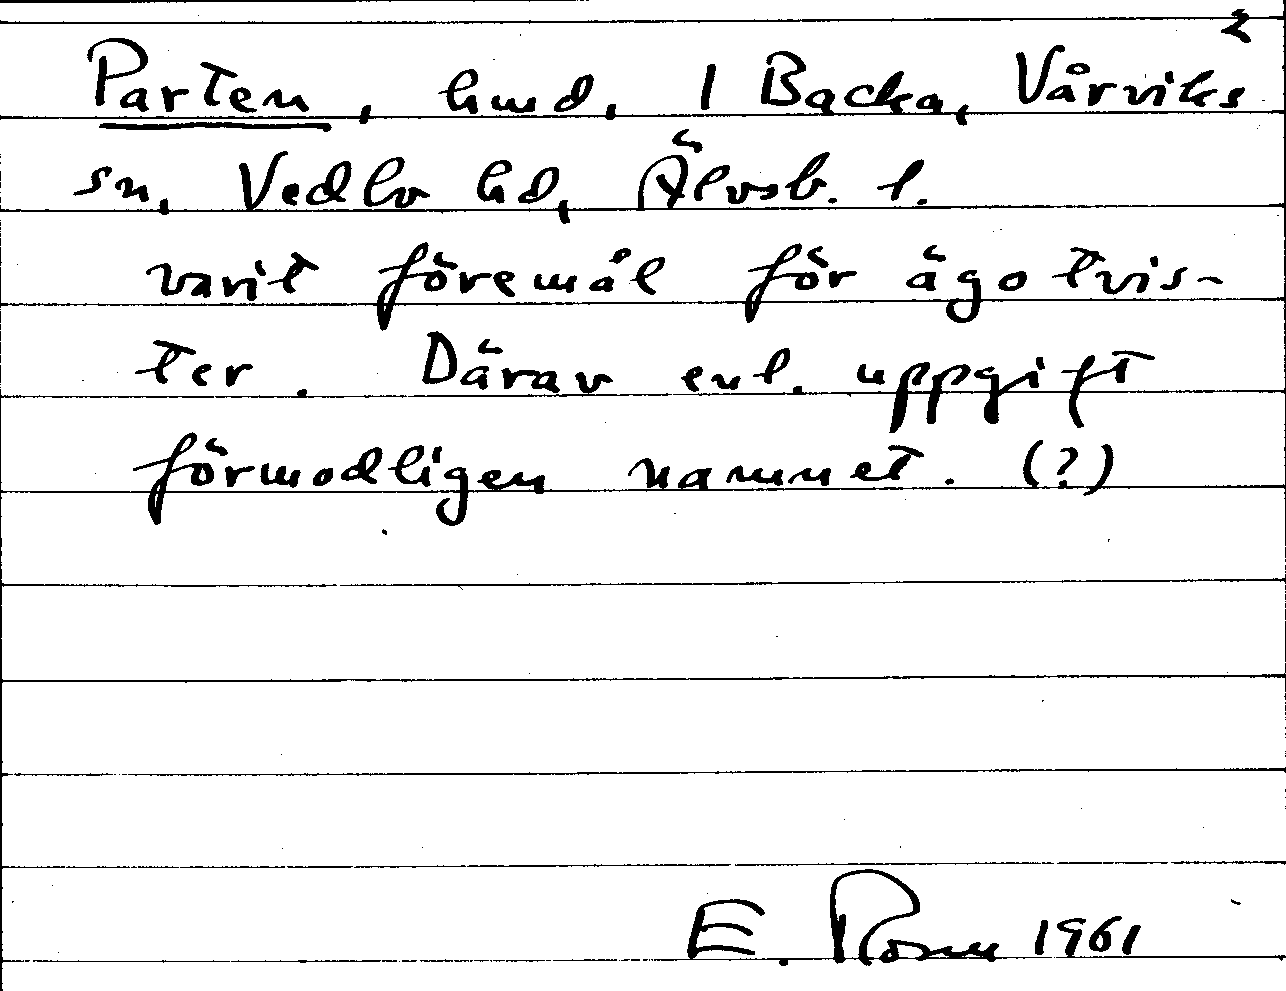 2
Parten, hmd, 1 Backa, Vårviks
sn, Vedbo hd, Älvsb. l.
varit föremål för ägotvis-
ter. Därav enl. uppgift
förmodligen namnet. (?)
E. 1961